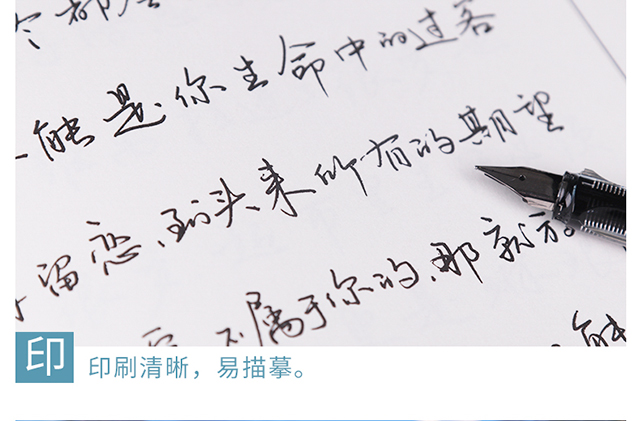 都
能是你生命中的过客
留恋,到头来所有的期望
不属于你的,那就
能
印
印刷清晰，易描摹。